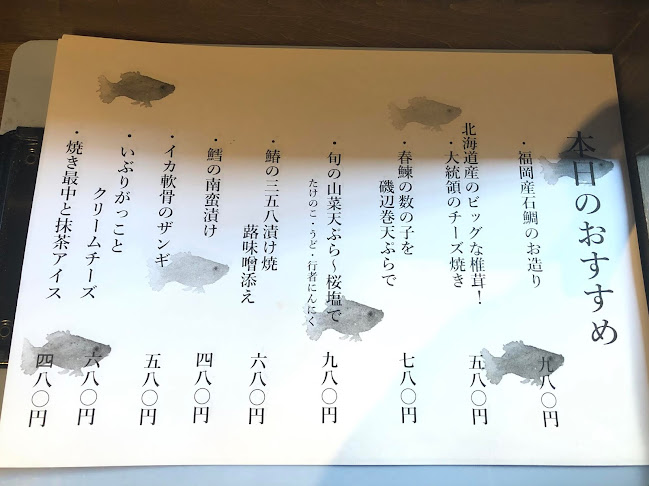 本日のおすすめ
・福岡産石鯛のお造り
九八〇円
北海道産のビッグな椎茸！
・大統領のチーズ焼き
五八〇円
・春鰊の数の子を
磯辺巻天ぷらで
七八〇円
・旬の山菜天ぷら〜桜塩で
たけのこ・うど・行者にんにく
九八〇円
・鰆の三五八漬け焼
蕗味噌添え
六八〇円
・鱈の南蛮漬け
四八〇円
・イカ軟骨のザンギ
五八〇円
・いぶりがっこと
クリームチーズ
六八〇円
・焼き最中と抹茶アイス
四八〇円